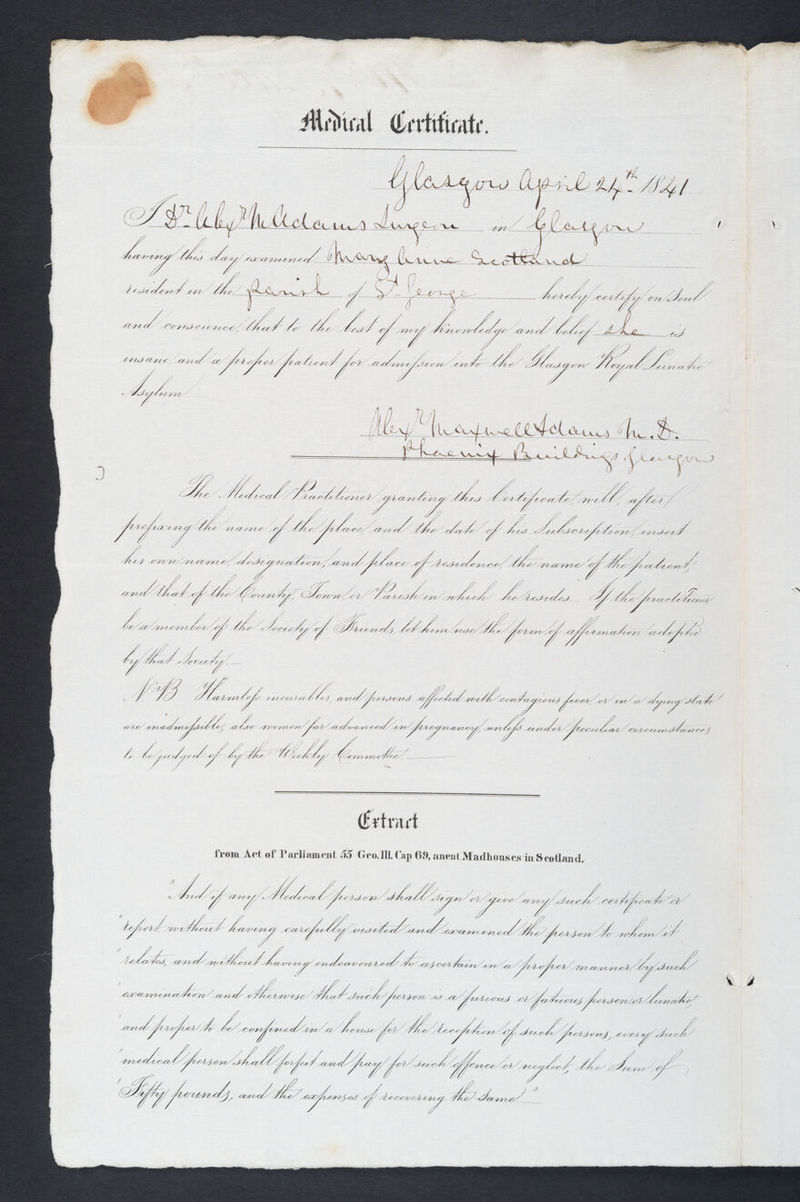 Medical Certificate.
Glasgow April 24th 1841
I Dr. Alexr M Adams Surgeon in Glasgow
having this day examined Mary Anne Scotland
resident in the parish of St. George hereby certify on Soul
and conscience, that to the best of my knowledge and belief she is
insane, and a proper patient for admission into the Glasgow Royal Lunatic
Asylum
Alexr Maxwell Adams M.D.
Phoenix Buildings Glasgow
The Medical Practitioner granting this Certificate, will, after
prefixing the name of the place, and the date of his Subscription, insert
his own name, designation, and place of residence, the name of the patient,
and that of the County, Town, or Parish in which he resides. If the practitioner
be a member of the Society of Friends, let him use the form of affirmation adopted
by that Society.—
N.B Harmless incurables, and persons affected with contagious fever, or in a dying state
are inadmissible, also women far advanced in pregnancy, unless under peculiar circumstances
to be judged of by the Weekly Committee.—
Extract
from Act of Parliament 55 Geo. III. Cap 69, anent Madhouses in Scotland.
"And if any Medical person shall sign or give any such certificate or
"report without having carefully visited and examined the person to whom it
"relates, and without having endeavoured to ascertain in a proper manner by such
"examination and otherwise that such person is a furious or fatuous person or lunatic
"and proper to be confined in a house for the reception of such persons, every such
"medical person shall forfeit and pay for such offence or neglect, the Sum of
"Fifty pounds, and the expenses of recovering the same"—